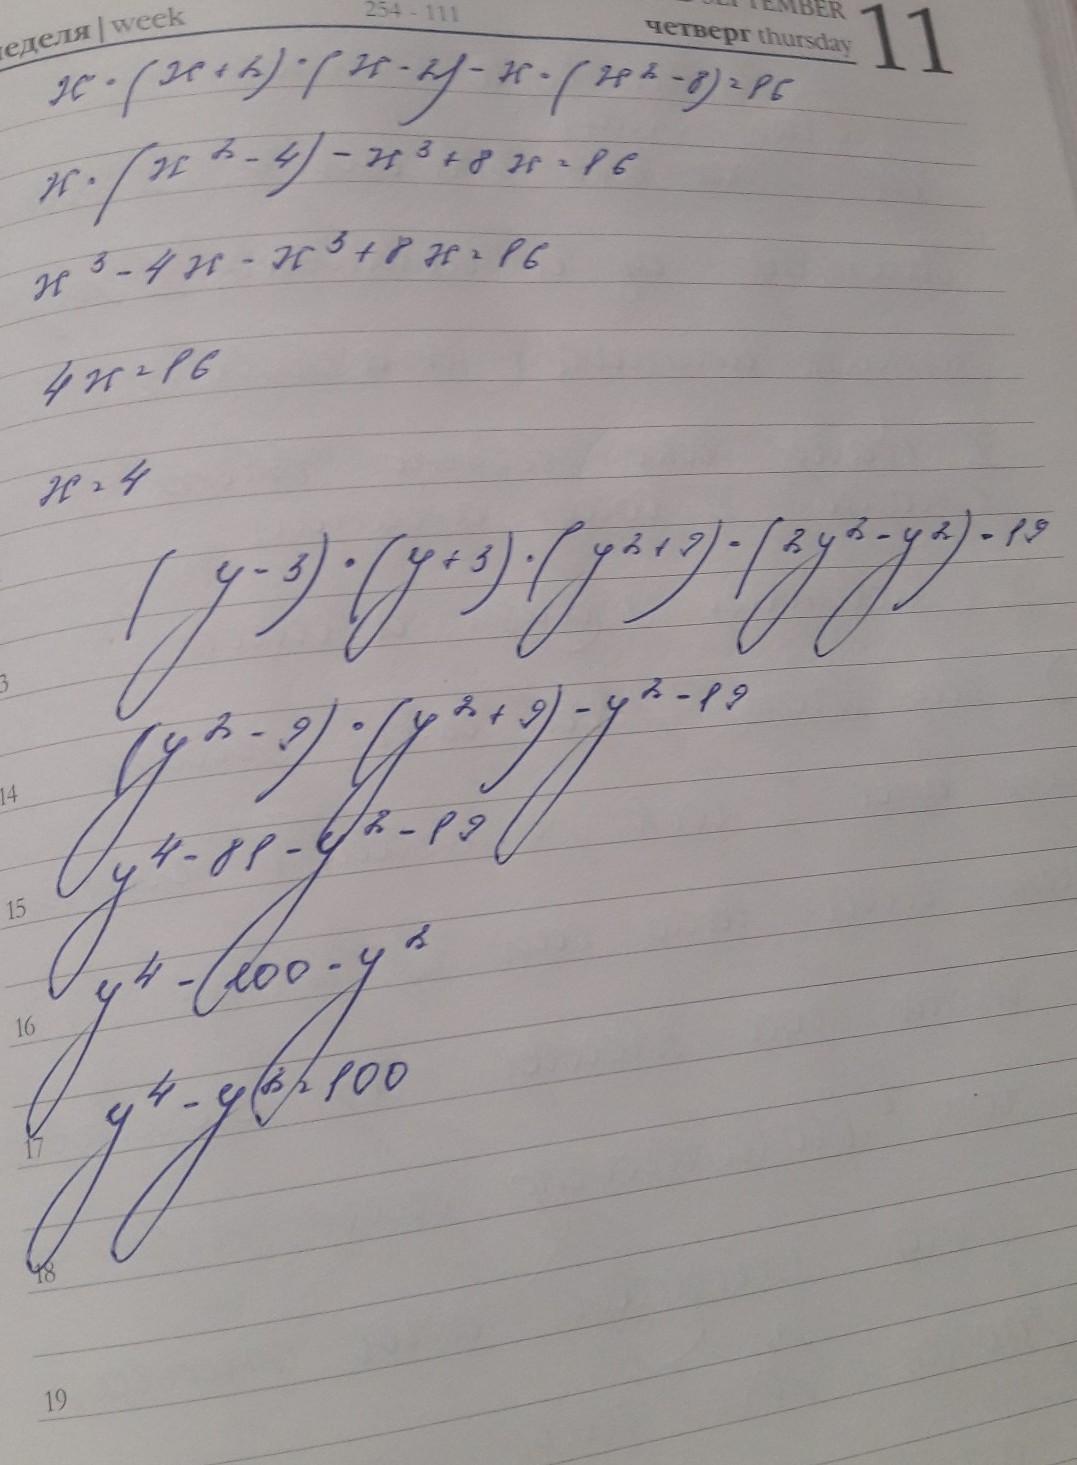 неделя | week
254 - 111
SEPTEMBER
четверг thursday
11
x · (x + 2) · (x - 2) - x · (x² - 8) = 16
x · (x² - 4) - x³ + 8x = 16
x³ - 4x - x³ + 8x = 16
4x = 16
x = 4
(y - 3) · (y + 3) · (y² + 9) - (2y² - y²) - 19
(y² - 9) · (y² + 9) - y² - 19
14
y⁴ - 81 - y² - 19
15
y⁴ - 100 - y²
16
y⁴ - y² = 100
17
18
19